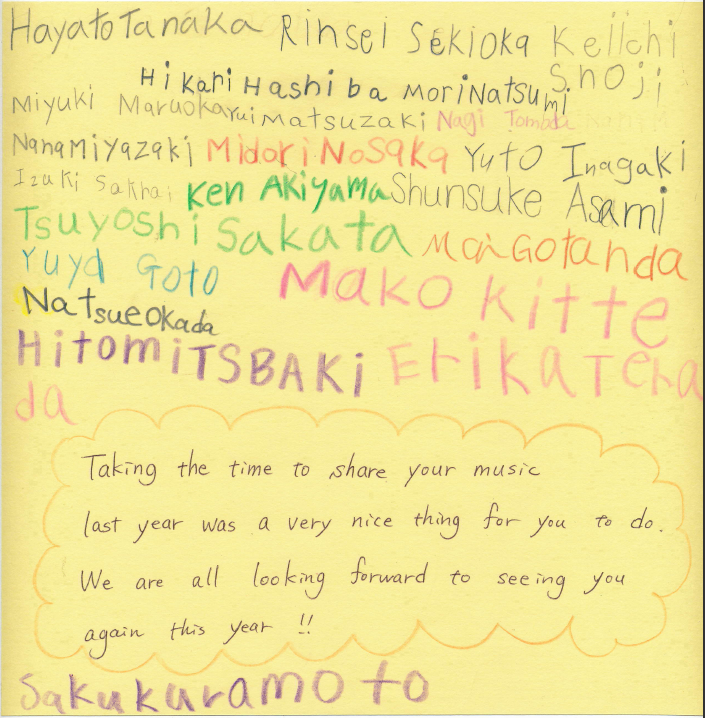 Hayato Tanaka Rinsei Sekioka Keiichi
Shoji
Hikari Hashiba Mori Natsumi
Miyuki Maruoka Yui Matsuzaki Nagi Tomada
Nana Miyazaki Midori Nosaka Yuto Inagaki
Izuki Sakhai Ken Akiyama Shunsuke Asami
Tsuyoshi Sakata Mai Gotanda
Yuya Goto Mako Kitte
Natsue Okada
Hitomi TSBAKi Erika Tera
da
Taking the time to share your music
last year was a very nice thing for you to do.
We are all looking forward to seeing you
again this year !!
Saku kuramoto